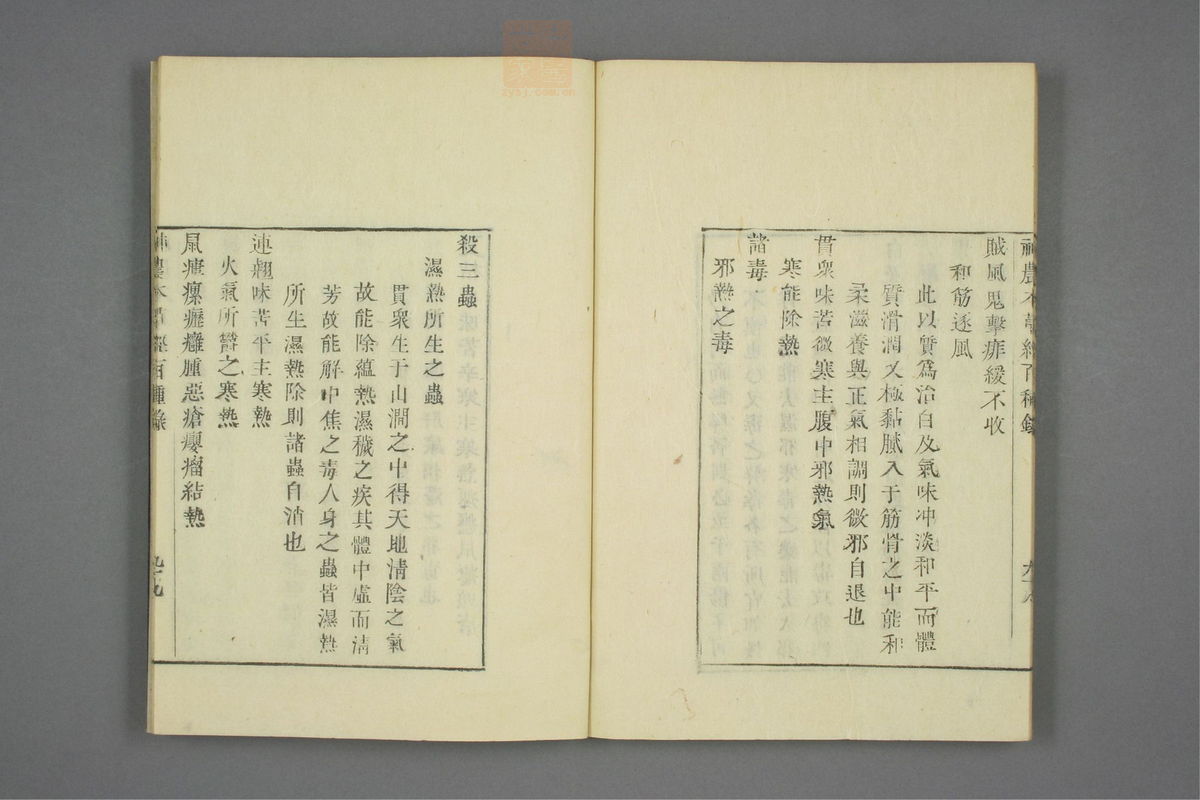 神農本草經百種錄 九十八
賊風鬼擊痱緩不收
和筋逐風
此以質爲治白及氣味冲淡和平而體
質滑潤又極黏膩入于筋骨之中能和
柔滋養與正氣相調則微邪自退也
貫衆味苦微寒主腹中邪熱氣
寒能除熱
諸毒
邪熱之毒
殺三蟲
濕熱所生之蟲
貫衆生于山澗之中得天地淸陰之氣
故能除蘊熱濕穢之疾其體中虛而淸
芳故能解中焦之毒人身之蟲皆濕熱
所生濕熱除則諸蟲自消也
連翹味苦平主寒熱
火氣所鬱之寒熱
鼠瘻瘰癧癰腫惡瘡癭瘤結熱
神農本草經百種錄 九十九
zysj.com.cn